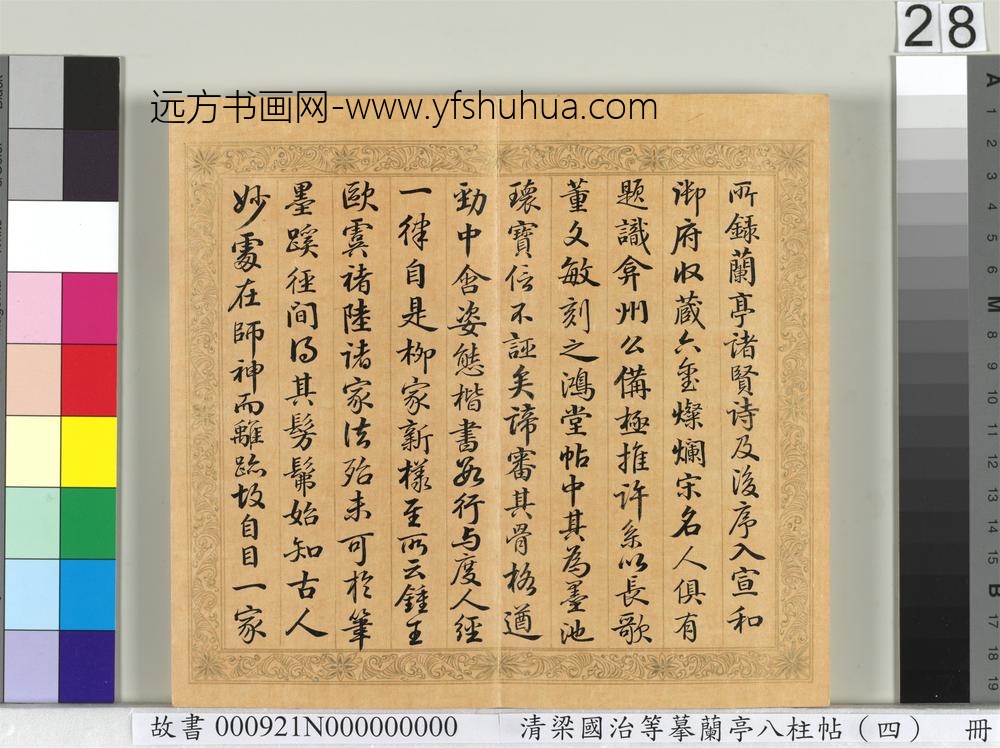 28
远方书画网-www.yfshuhua.com
所録蘭亭諸賢诗及後序入宣和
御府收藏六璽燦爛宋名人俱有
题識弇州公備極推许系以長歌
董文敏刻之鴻堂帖中其為墨池
瓌寶信不誣矣諦審其骨格遒
勁中含姿態楷書數行与度人經
一律自是柳家新樣至所云鍾王
歐虞褚陸诸家法殆未可於筆
墨蹊徑间得其髣髴始知古人
妙處在師神而離跡故自目一家
故書 000921N000000000 清梁國治等摹蘭亭八柱帖（四） 冊
A 1 2 3 4 5 6 M 8 9 10 11 12 13 14 15 B 17 18 19